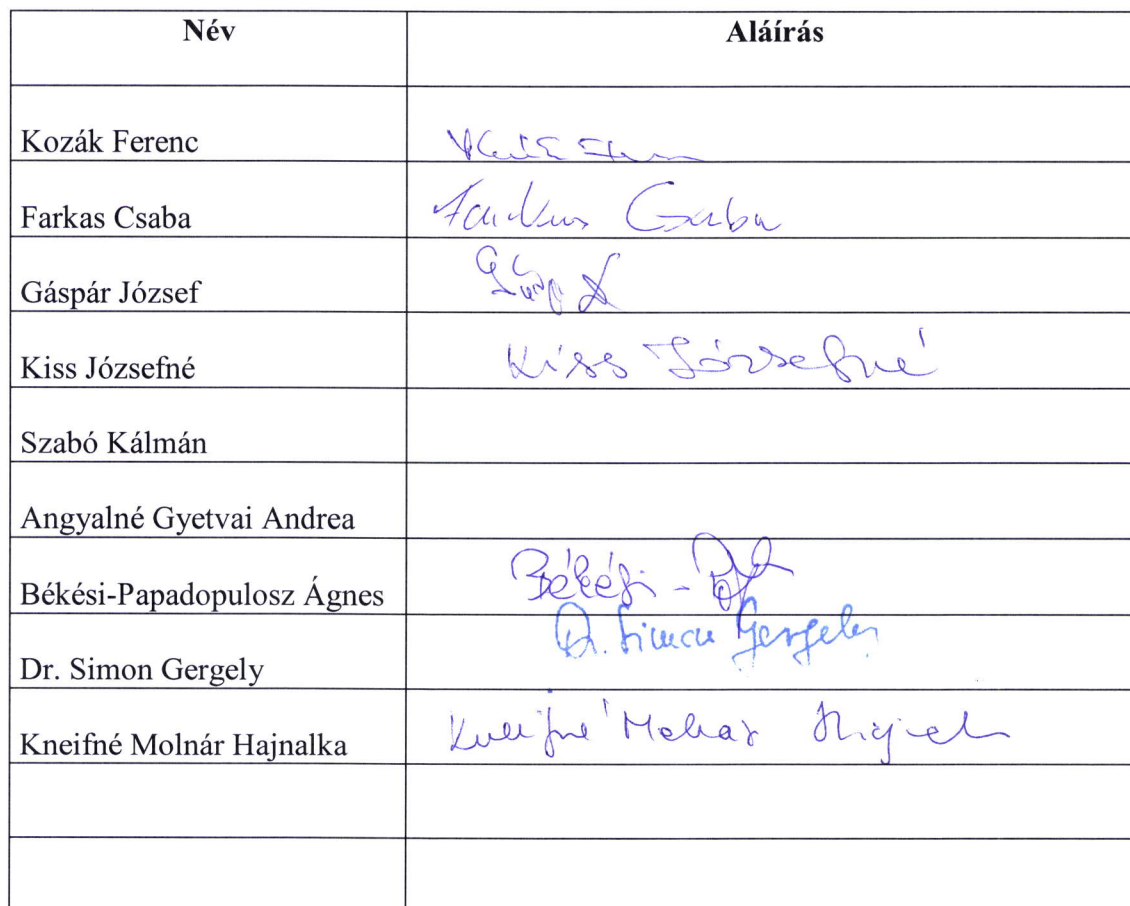 Név Aláírás
Kozák Ferenc
Farkas Csaba Farkas Csaba
Gáspár József
Kiss Józsefné Kiss Józsefné
Szabó Kálmán
Angyalné Gyetvai Andrea
Békési-Papadopulosz Ágnes Békési-
Dr. Simon Gergely Dr. Simon Gergely
Kneifné Molnár Hajnalka Kneifné Molnár